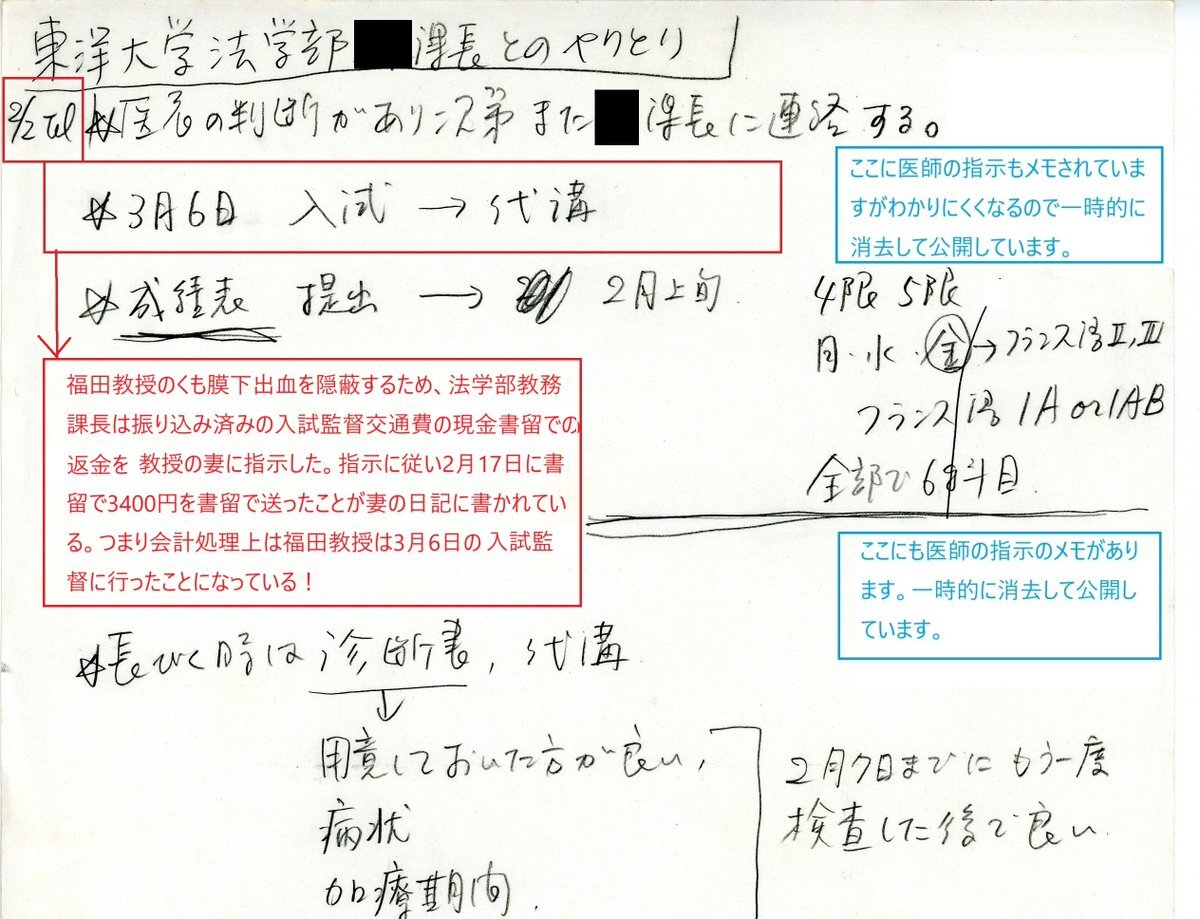 東洋大学法学部 課長とのやりとり
2/2 tel ☆医者の判断があり次第また 課長に連絡する。
☆3月6日 入試 → 代講
ここに医師の指示もメモされていま
すがわかりにくくなるので一時的に
消去して公開しています。
☆成績表 提出 → 2月上旬
4限 5限
月・水・金→フランス語Ⅱ,Ⅲ
フランス語 1A or 1AB
全部で6科目
福田教授のくも膜下出血を隠蔽するため、法学部教務
課長は振り込み済みの入試監督交通費の現金書留での
返金を 教授の妻に指示した。指示に従い2月17日に書
留で3400円を書留で送ったことが妻の日記に書かれてい
る。つまり会計処理上は福田教授は3月6日の 入試監
督に行ったことになっている！
ここにも医師の指示のメモがあり
ます。一時的に消去して公開し
ています。
☆長びく時は診断書, 代講
↓
用意しておいた方が良い,
病状
加療期間.
2月7日までにもう一度
検査した後で良い